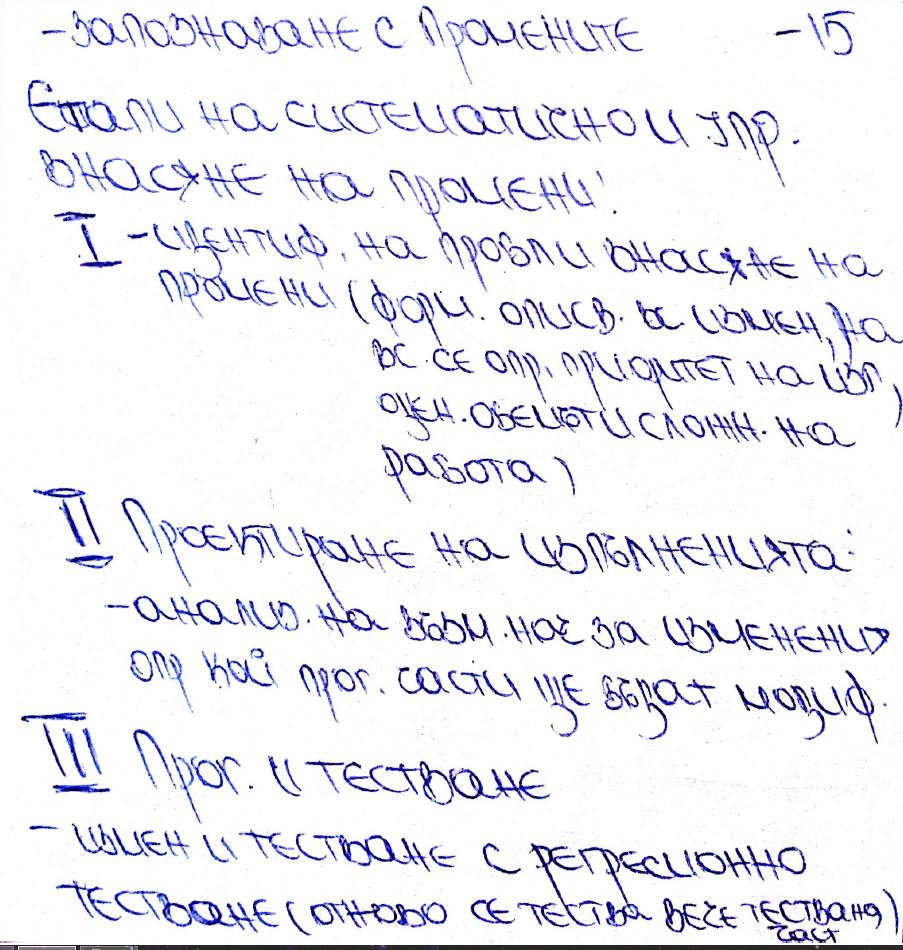 -запознаване с промените -15
Етапи на систематично и упр.
внасяне на промени:
I -идентиф. на пробл и внасяне на
промени (форм. описв. вс. измен, на
вс. се опр. приоритет на изп,
оцен. обемът и сложн. на
работа)
II Проектиране на изпълненията:
-анализ. на възм. нач за изменения
опр кой прог. части ще бъдат модиф.
III Прог. и тестване
- измен и тестване с регресионно
тестване (отново се тества вече тествана
част)